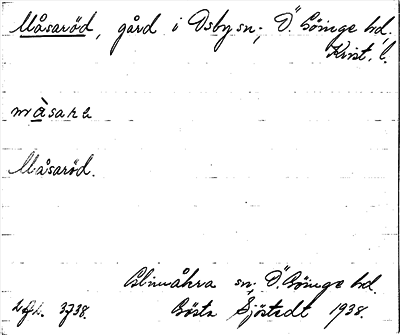 Måsaröd, gård i Osby sn; Ö. Göinge hd,
Krist. l.
måsara
Måsaröd.
Glimåkra sn; Ö. Göinge hd.
Gösta Sjöstedt 1938.
3738.